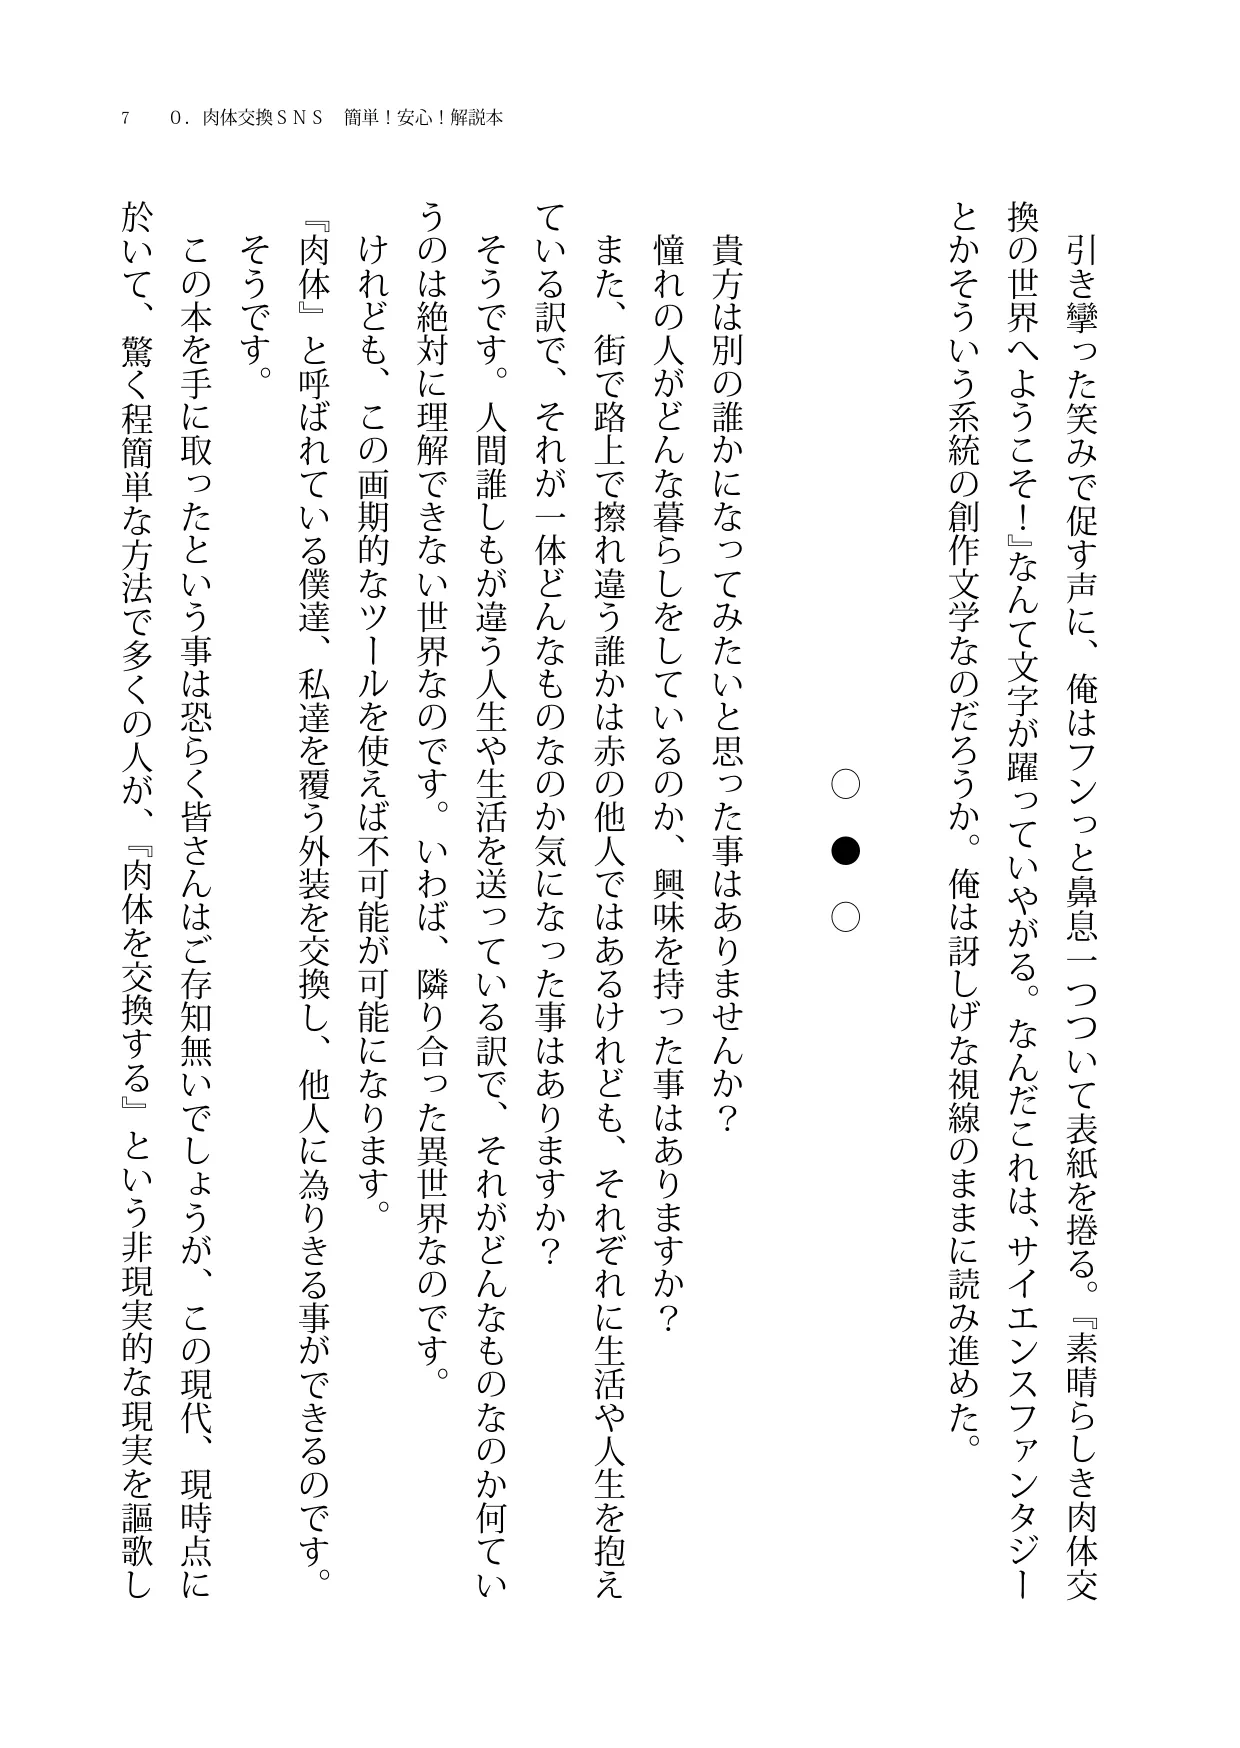 7　0．肉体交換ＳＮＳ　簡単！安心！解説本
引き攣った笑みで促す声に、俺はフンっと鼻息一つついて表紙を捲る。『素晴らしき肉体交
換の世界へようこそ！』なんて文字が躍っていやがる。なんだこれは、サイエンスファンタジー
とかそういう系統の創作文学なのだろうか。俺は訝しげな視線のままに読み進めた。
○●○
貴方は別の誰かになってみたいと思った事はありませんか？
憧れの人がどんな暮らしをしているのか、興味を持った事はありますか？
また、街で路上で擦れ違う誰かは赤の他人ではあるけれども、それぞれに生活や人生を抱え
ている訳で、それが一体どんなものなのか気になった事はありますか？
そうです。人間誰しもが違う人生や生活を送っている訳で、それがどんなものなのか何てい
うのは絶対に理解できない世界なのです。いわば、隣り合った異世界なのです。
けれども、この画期的なツールを使えば不可能が可能になります。
『肉体』と呼ばれている僕達、私達を覆う外装を交換し、他人に為りきる事ができるのです。
そうです。
この本を手に取ったという事は恐らく皆さんはご存知無いでしょうが、この現代、現時点に
於いて、驚く程簡単な方法で多くの人が、『肉体を交換する』という非現実的な現実を謳歌し